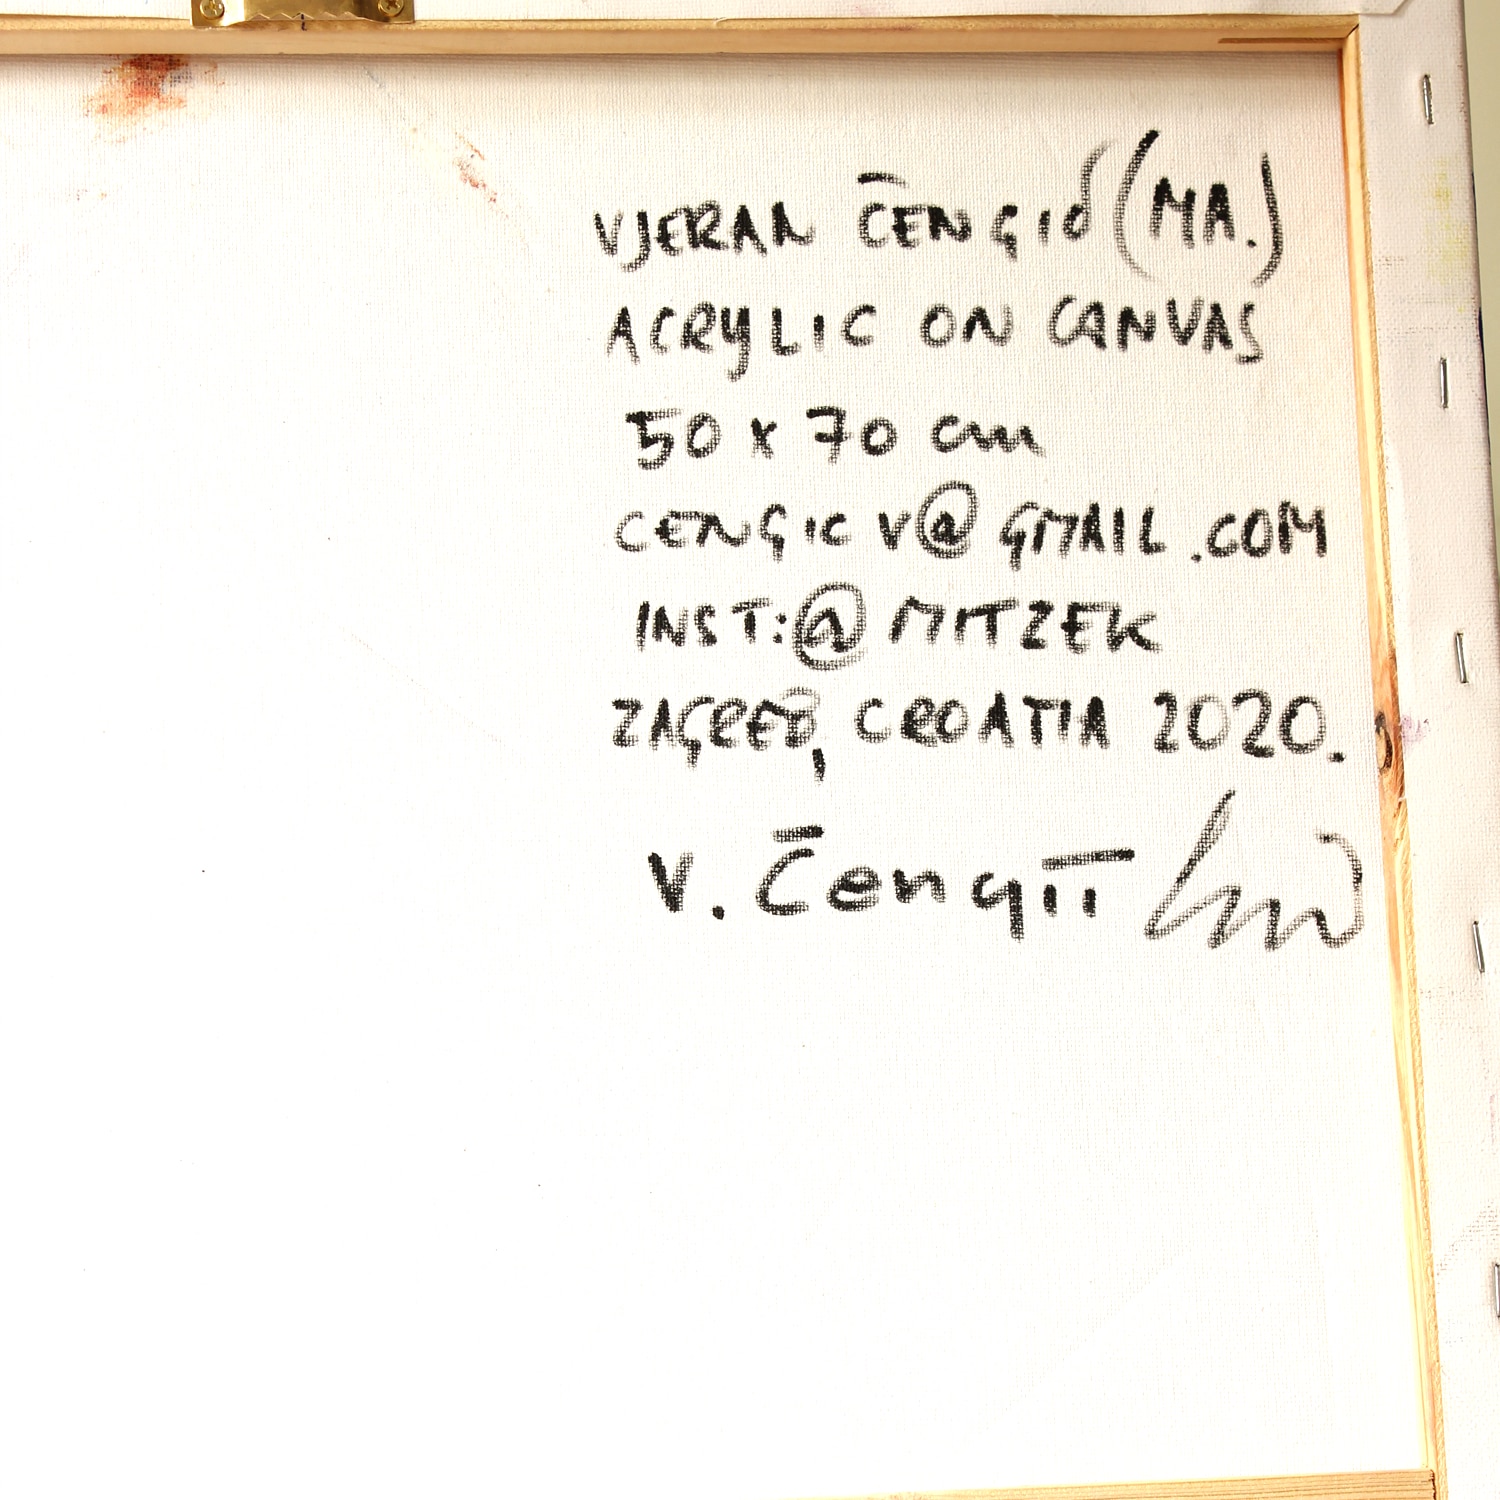 VJERAN ČENGIĆ (MA.)
ACRYLIC ON CANVAS
50 x 70 cm
CENGIC V@GMAIL.COM
INST:@MITZEK
ZAGREB, CROATIA 2020.
V. Čengić